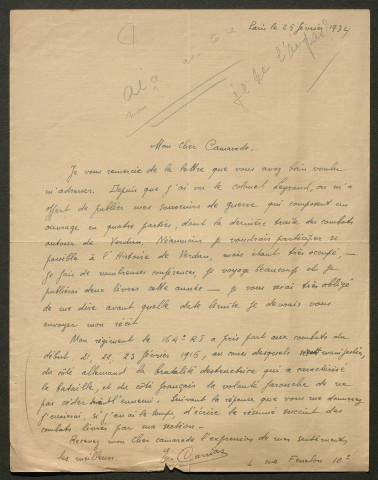 Paris le 25 février 1934
je ne l'ai pas
Mon Cher Camarade.
Je vous remercie de la lettre que vous avez bien voulu
m'adresser. Depuis que j'ai vu le colonel Legrand, on m'a
offert de publier mes souvenirs de guerre qui composent un
ouvrage en quatre parties, dont la dernière traite des combats
autour de Verdun. Néanmoins je voudrais participer si
possible à l'Histoire de Verdun, mais étant très occupé, —
je fais de nombreuses conférences, je voyage beaucoup et je
publierai deux livres cette année — je vous serai très obligé
de me dire avant quelle date limite je devrais vous
envoyer mon récit.
Mon régiment le 164e RI a pris part aux combats du
début, 21, 22, 23 février 1916, au cours desquels se sont manifestées,
du côté allemand la brutalité destructrice qui a caractérisé
la bataille, et du côté français la volonté farouche de ne
pas céder à l'ennemi. Suivant la réponse que vous me donnerez
j'essaierai, si j'en ai le temps, d'écrire le résumé succinct des
combats livrés par ma section —
Recevez mon cher camarade l'expression de mes sentiments
les meilleurs.
4 rue Fénelon 10e